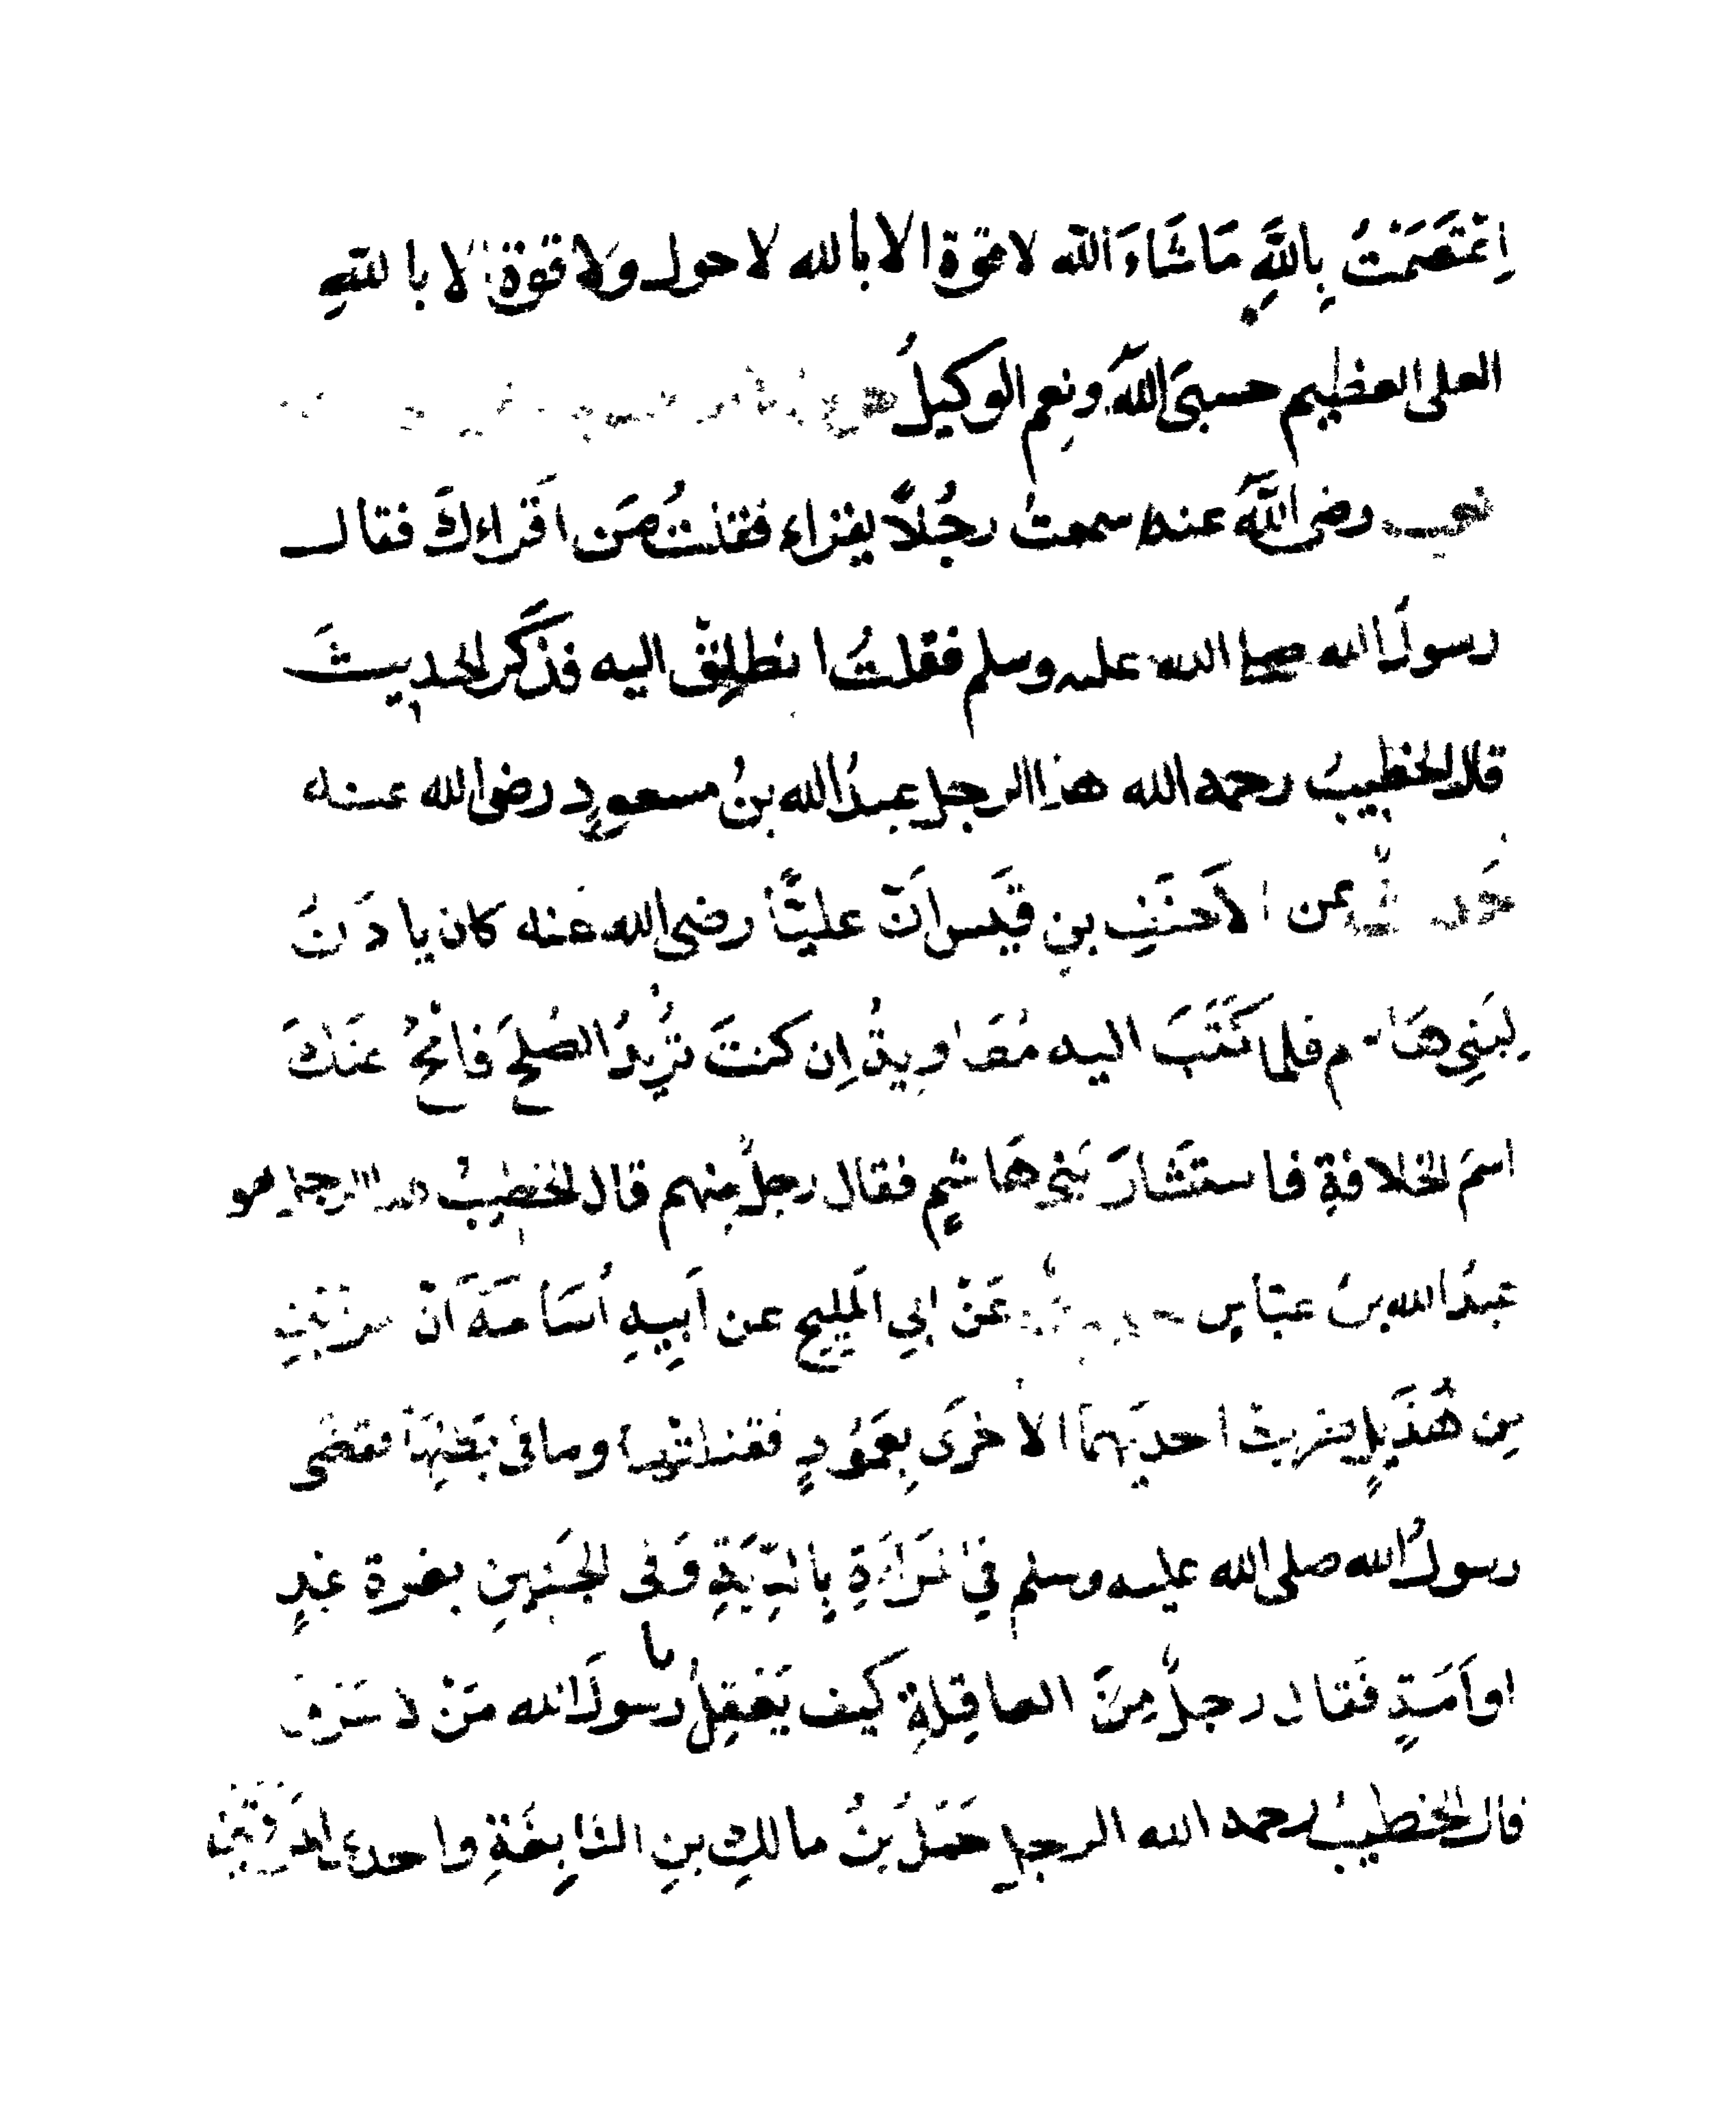 اِعْتَصَمْتُ بِاللَّهِ مَا شَاءَ اللّه لا قوّة الا بالله لا حول ولا قوّة الا باللّهِ
العلى العظيم حسبىَ اللّهُ ونِعم الوكيلُ
رضى اللَّهُ عنه سمعتُ رجُلاً يقراء فقلتُ مَن اَقراءكَ فقال
رسولُ الله صلى الله عليه وسلم فقلتُ انطلِقْ اليه فذكَر الحديثَ
قال الخطيبُ رحمه الله هذا الرجل عبدُ الله بنُ مسعودٍ رضى الله عنه
عن الاَحنَفِ بنِ قَيس اَنّ عليًّا رضى الله عنه كان ياذَنُ
لِبَنِى هَاشم فلما كَتَبَ اليه مُعَاوِيةُ اِن كنتَ تُرِيدُ الصُلحَ فامْحُ عَنكَ
اسمَ الخلافةِ فاستَشَارَ بَنِى هَاشِمٍ فقال رجلٌ مِنهم قال الخطيبُ هذا الرجل هو
عبدُ الله بنُ عبّاسٍ عَنْ ابِى المَلِيحِ عن اَبِيهِ اُسَامَةَ اَنّ
مِن هُذَيلٍ ضربت احديهما الاُخرَى بِعَمُودٍ فقتلتْها وما فى بَطنِهَا فقضَى
رسولُ الله صلى الله عليه وسلم فِى المَرْاَةِ بِالدِّيَةِ وَفى الجَنِينِ بغرة عَبدٍ
اواَمَةٍ فَقال رجلٌ مِنَ العاقِلةِ كيف يَعقِلُ يا رسولَ الله مَنْ لا شَرِبَ
قال الخطيبُ رحمه الله الرجل حَمَلُ بنُ مالكِ بنِ النّابِغَةِ واحدى المرءَتَينِ